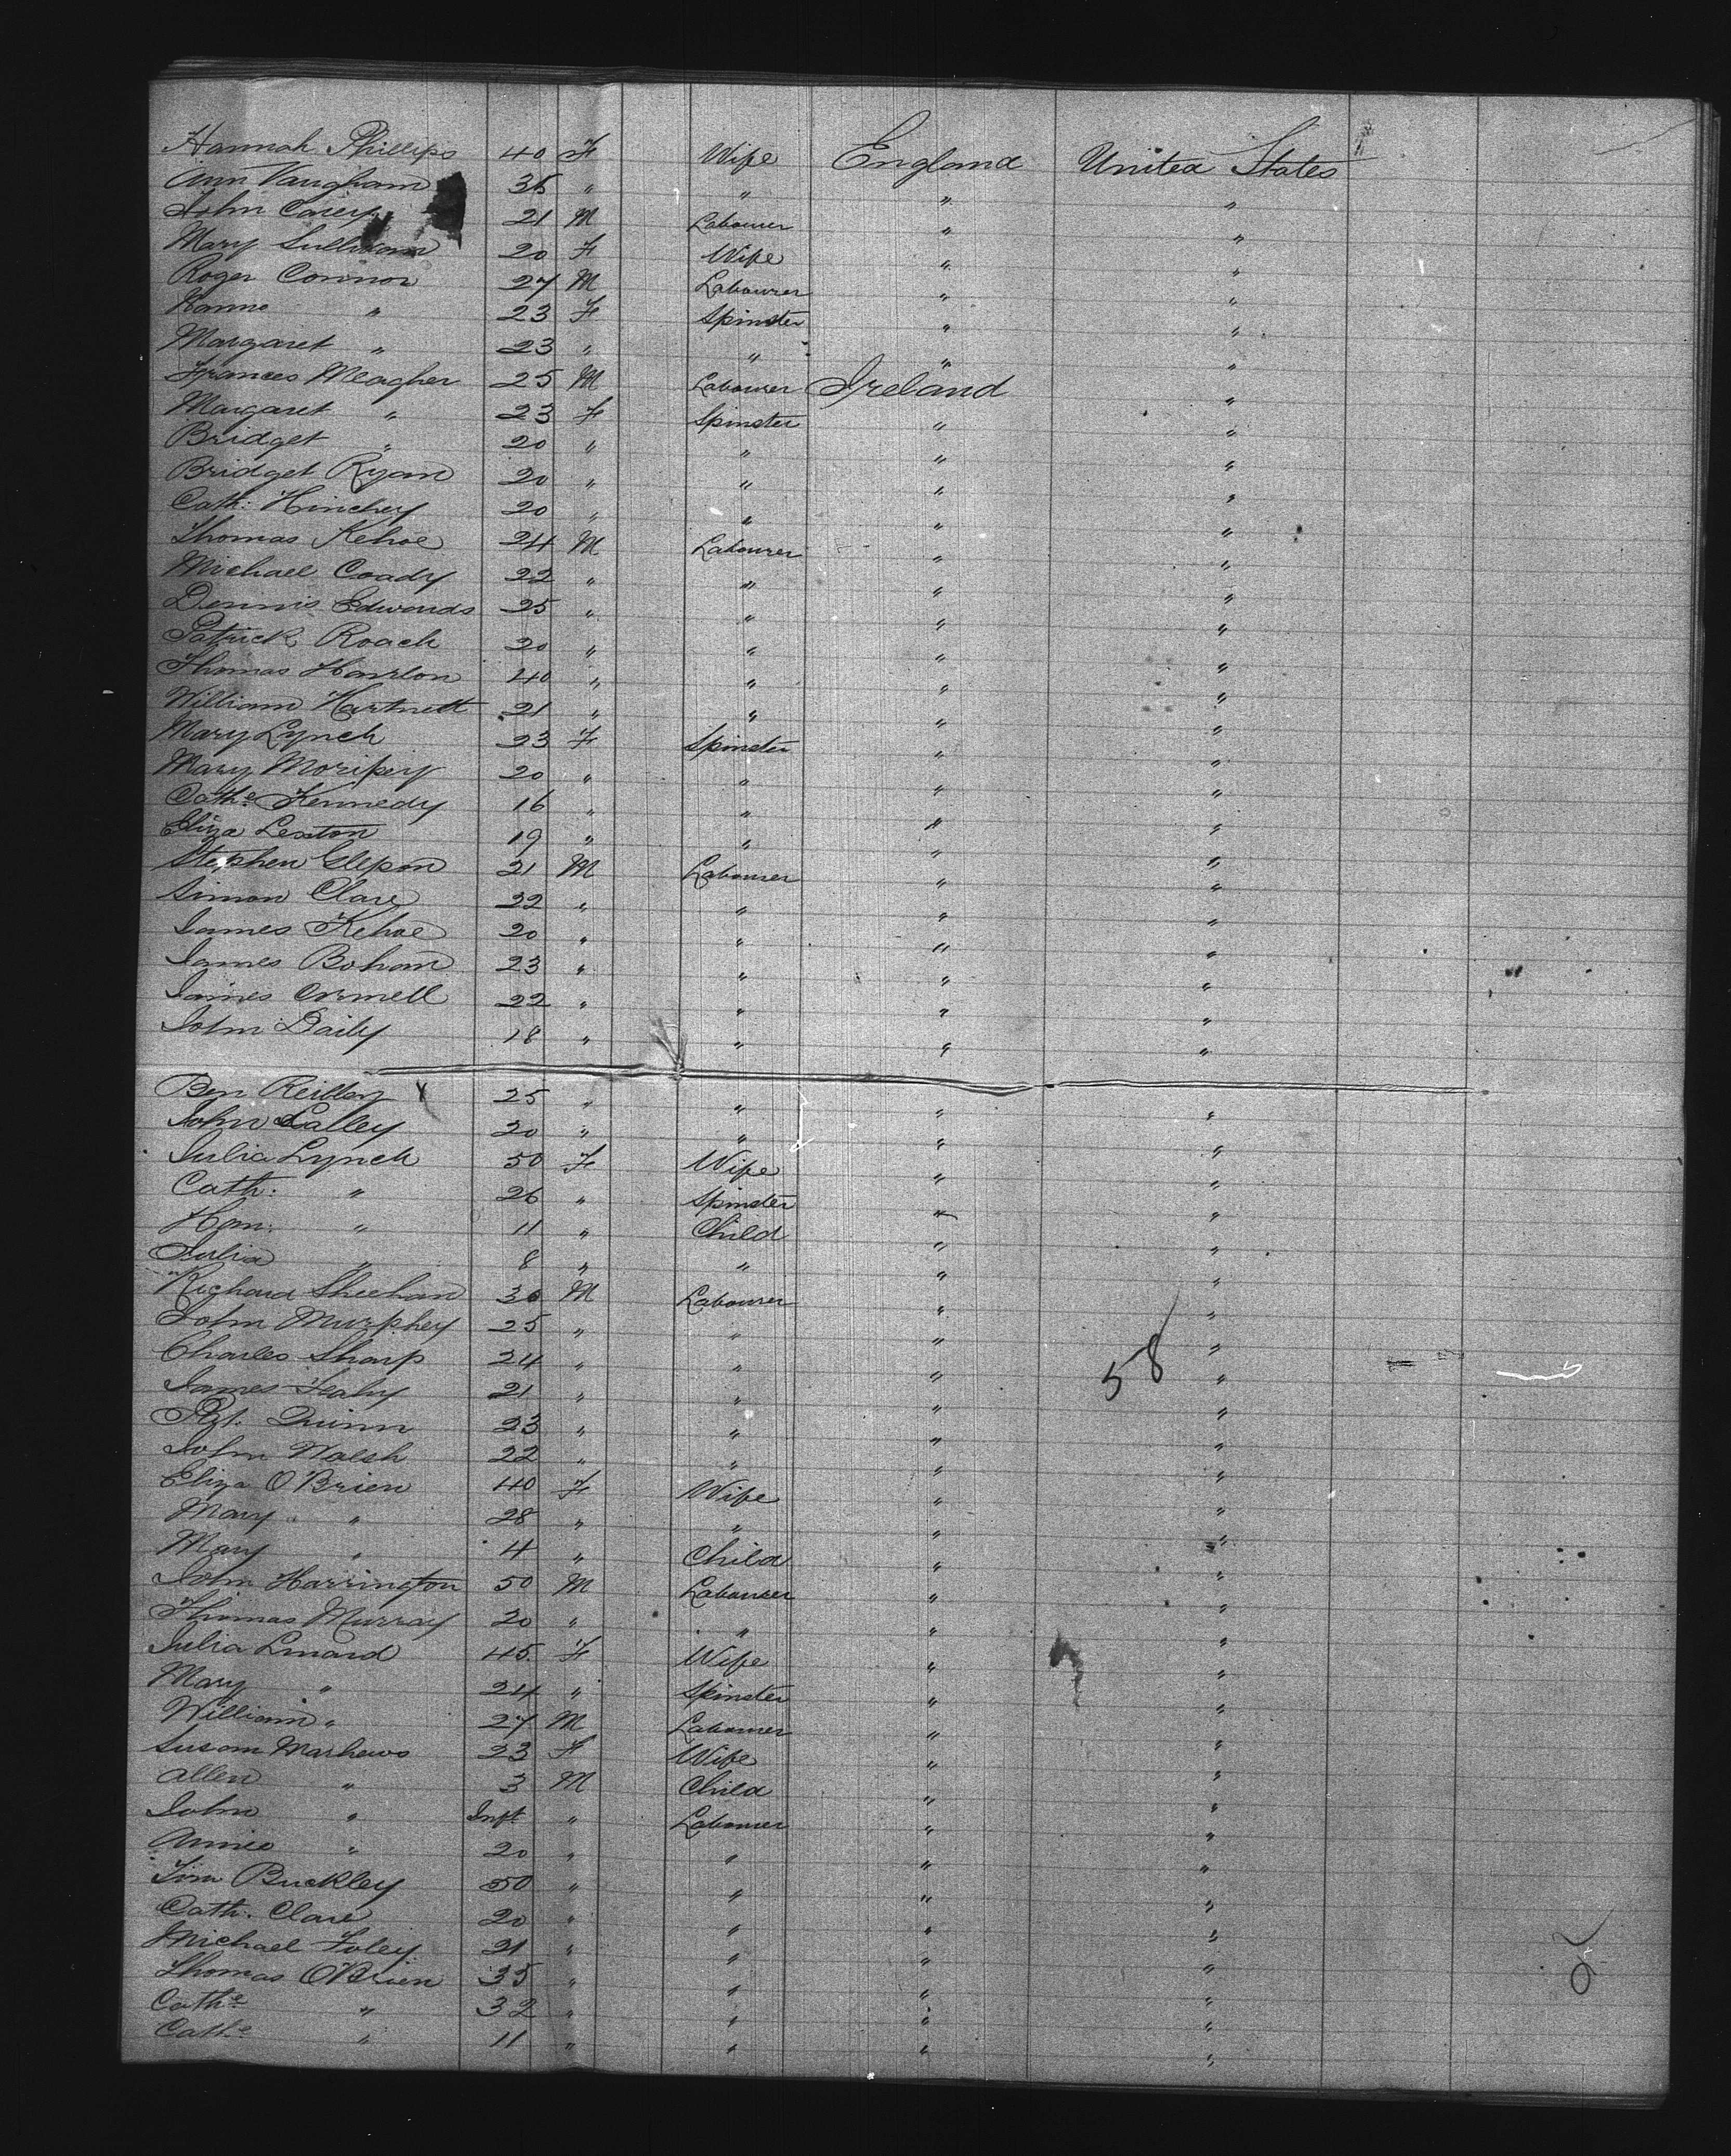 Hannah Phillips 40 F Wife England United States
Ann Vaugham 35 " " " "
John Carey 21 M Labourer " "
Mary Sullivan 20 F Wife " "
Roger Connor 27 M Labourer " "
Hanna " 23 F Spinster " "
Margaret " 23 " " " "
Frances Meagher 25 M Labourer Ireland "
Margaret " 23 F Spinster " "
Bridget " 20 " " " "
Bridget Ryan 20 " " " "
Cath: Hinchey 20 " " " "
Thomas Kehoe 24 M Labourer " "
Michael Coady 22 " " " "
Dennis Edwards 25 " " " "
Patrick Roach 20 " " " "
Thomas Hanlon 40 " " " "
William Hartnett 21 " " " "
Mary Lynch 23 F Spinster " "
Mary 20 " " " "
Cathe Kennedy 16 " " " "
Eliza Lexton 19 " " " "
Stephen 21 M Labourer " "
Simon Clare 22 " " " "
James Kehoe 20 " " " "
James Boham 23 " " " "
James Ormell 22 " " " "
John Daily 18 " " " "
Ben Reilley 25 " " " "
John Lalley 20 " " " "
Julia Lynch 50 F Wife " "
Cath: " 26 " Spinster " "
Han: " 11 " Child " "
Julia " 8 " " " "
Richard Sheehan 30 M Labourer " "
John Murphey 25 " " " "
Charles Sharp 24 " " " " 58
James Leahy 21 " " " "
Pat. Quinn 23 " " " "
John Walsh 22 " " " "
Eliza O'Brien 40 F Wife " "
Mary " 28 " " " "
Mary " 4 " Child " "
John Harrington 50 M Labourer " "
Thomas Murray 20 " " " "
Julia Lunard 45 F Wife " "
Mary " 24 " Spinster " "
William " 27 M Labourer " "
Susan Mashews 23 F Wife " "
Allen " 3 M Child " "
John " Inft " Labourer " "
Annie " 20 " " " "
Tim Buckley 50 " " " "
Cath. Clare 20 " " " "
Michael Foley 21 " " " "
Thomas O'Brien 35 " " " "
Cathe " 32 " " " "
Cathe " 11 " " " "